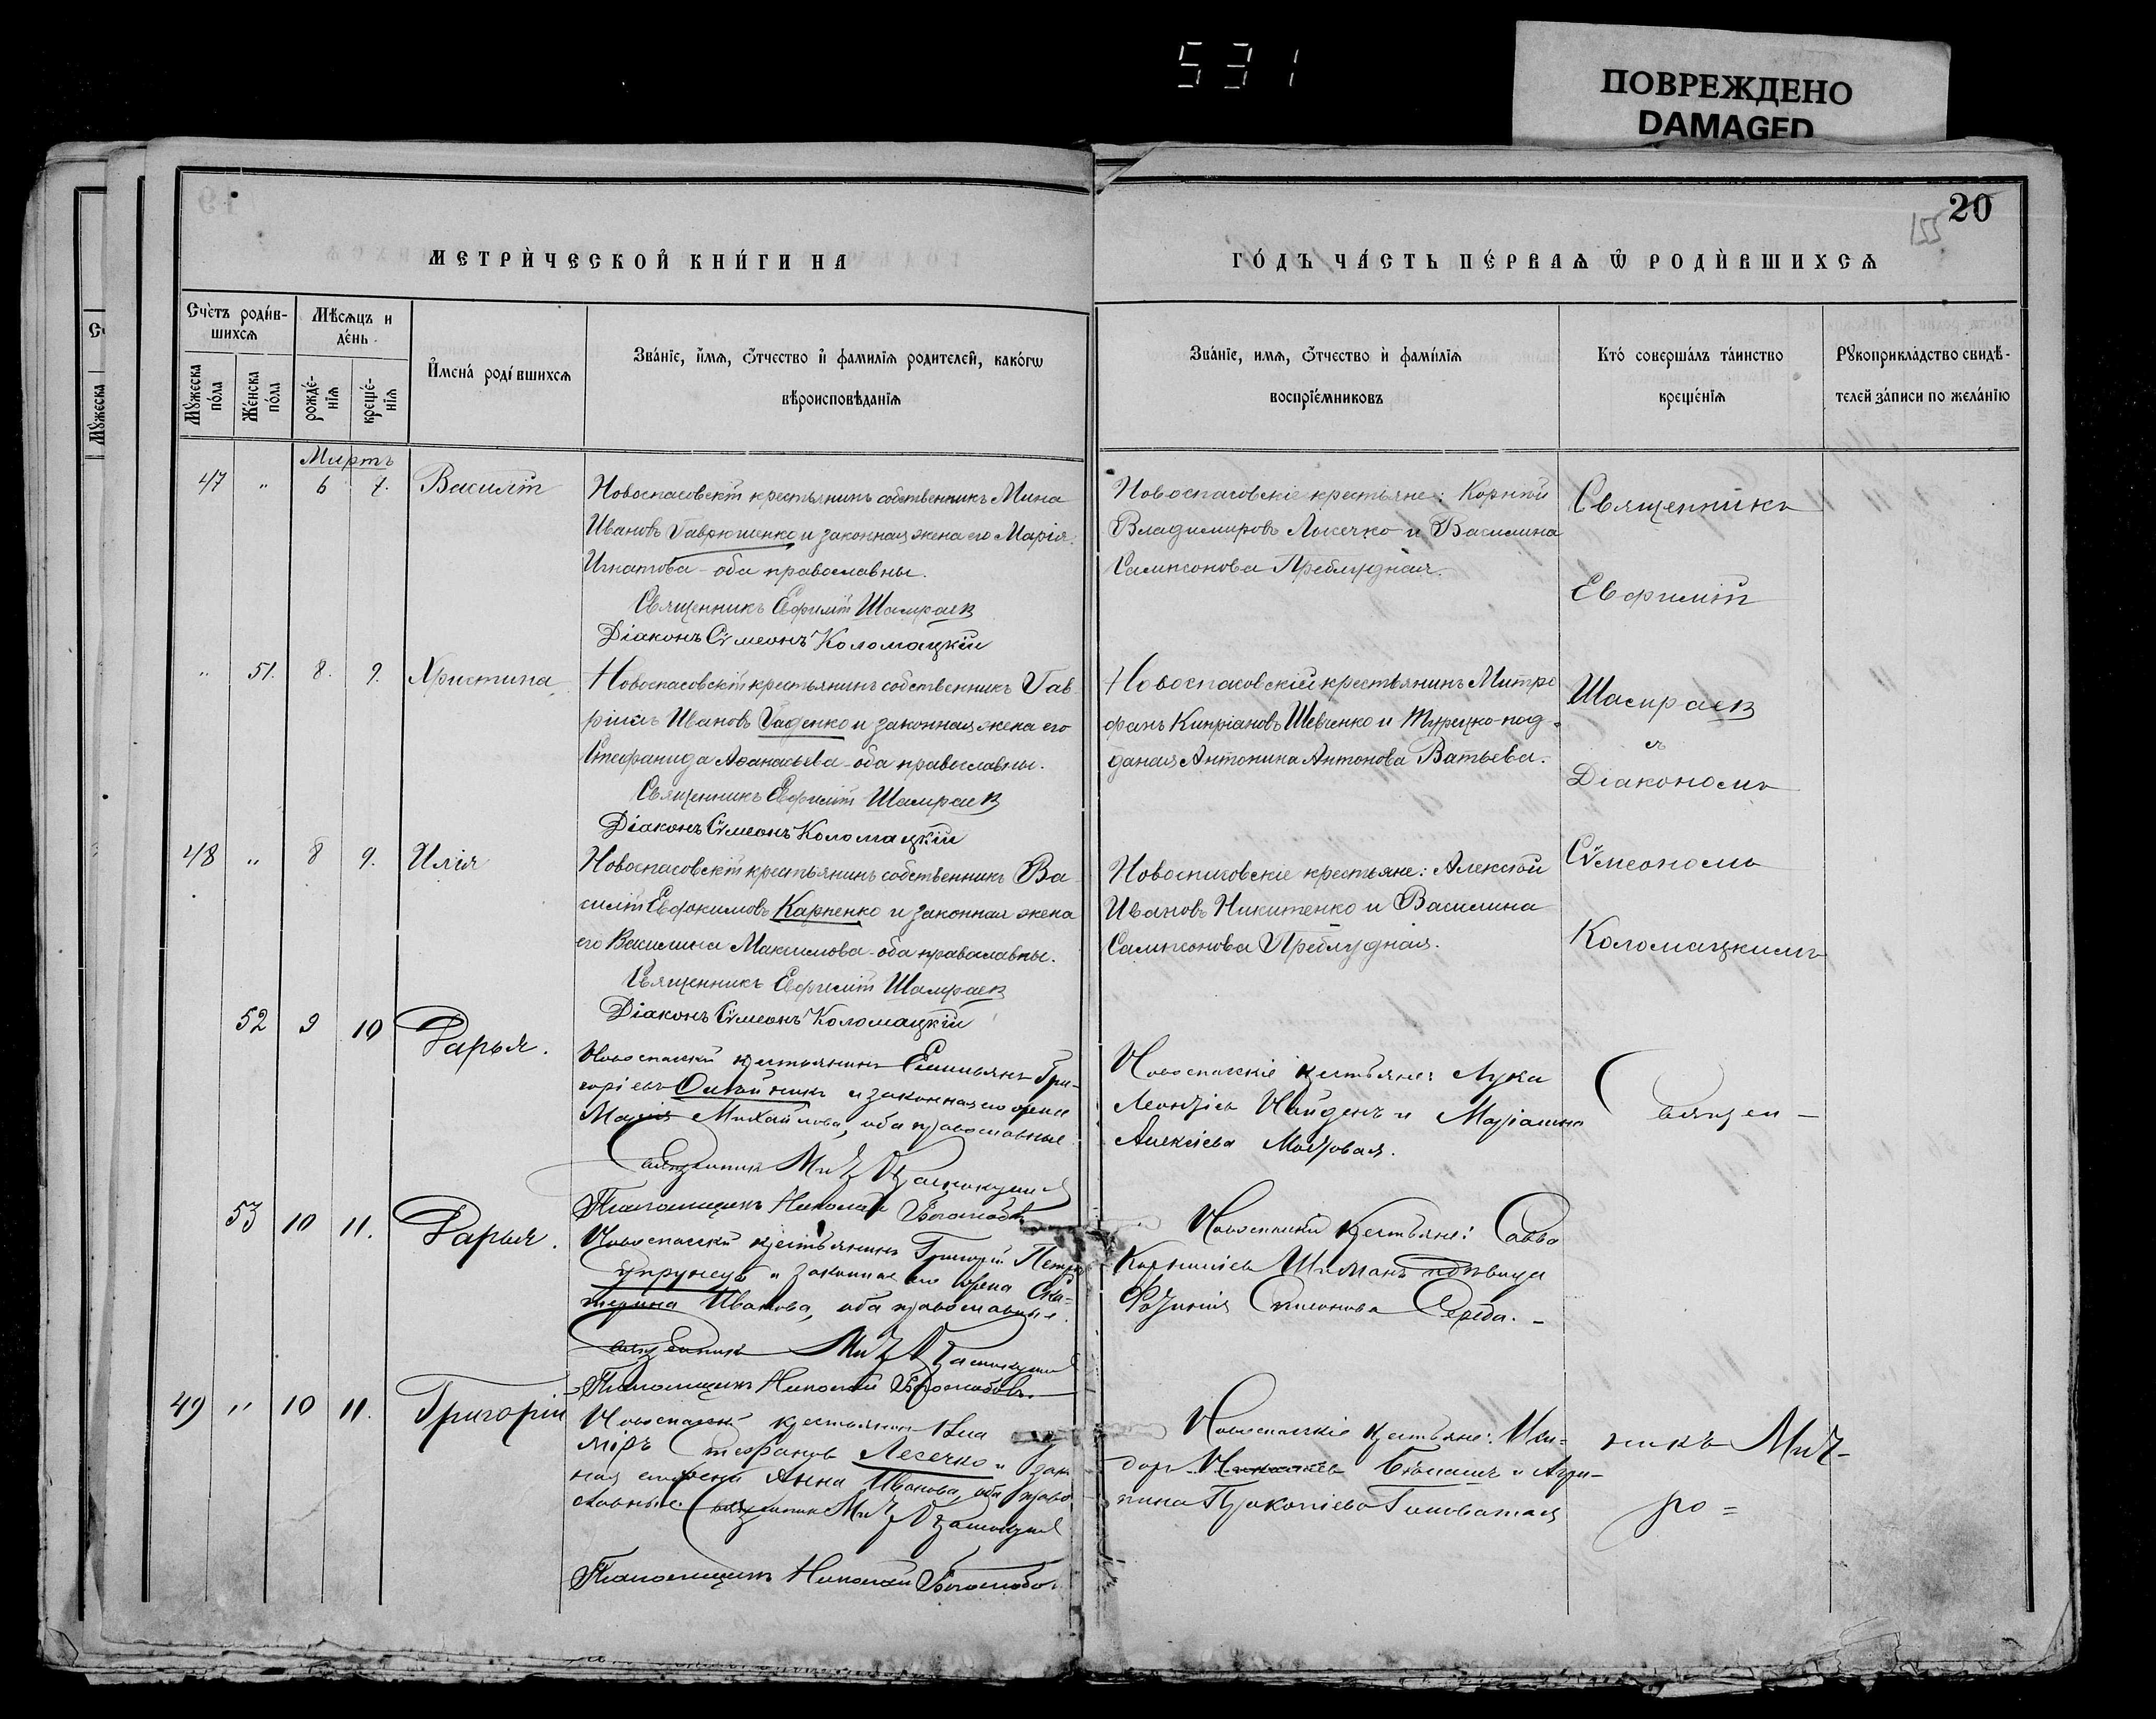 531
ПОВРЕЖДЕНО
DAMAGED
20
155
МЕТРИ́ЧЕСКОЙ КНИ́ГИ НА
ГО́ДЪ ЧА́СТЬ ПЕ́РВАѦ Ѿ РОДИ́ВШИХСѦ
Сче́тъ роди́в-
шихсѧ
Мꙋ́жеска
по́ла
Же́нска
по́ла
Мѣ́сѧцъ и
де́нь
рожде́-
нїѧ
креще́-
нїѧ
И҆мена̀ роді́вшихсѧ
Зва́нїе, и҆́мѧ, ѻ҆́тчество и҆ фамилїѧ родителей, како́гѡ
вѣроисповѣ́данїѧ
Зва́нїе, имѧ, ѻ҆́тчество и҆ фами́лїѧ
воспрїе́мниковъ
Кто́ соверша́лъ та́инство
креще́нїѧ
Рꙋкоприкла́дство свидѣ́-
телей за́писи по жела́нїю
Мартъ
47 " 6 7. Василій
Новоспасовскій крестьянинъ собственникъ Мина
Ивановъ Гаврюшенко и законная жена его Марія
Игнатова - оба православны.
Священникъ Евфимій Шамраев
Діаконъ Сѵмеонъ Коломацкій
Новоспасовскіе крестьяне: Корній
Владимировъ Лосечко и Василина
Сампсонова Преблудная.
Священникъ
Евфимій
" 51. 8. 9. Христина
Новоспасовскій крестьянинъ собственникъ Гав
ріилъ Ивановъ Гаденко и законная жена его
Стефанида Аѳанасьева - оба православны.
Священникъ Евфимій Шамраев
Діаконъ Сѵмеонъ Коломацкій
Новоспасовскій крестьянинъ Митро
фанъ Кипріановъ Шевченко и Турецко-под-
даная Антонина Антонова Ватьева.
Шамраев
съ
Діакономъ
48 " 8 9. Илія
Новоспасовскій крестьянинъ собственникъ Ва-
силій Евфокимовъ Карпенко и законная жена
его Василина Максимова - оба православны.
Священникъ Евфимій Шамраев
Діаконъ Сѵмеонъ Коломацкій
Новоспасовскіе крестьяне: Алексѣй
Ивановъ Никитенко и Василина
Сампсонова Преблудная.
Сѵмеономъ
Коломацкимъ
52 9 10 Дарья.
Новоспасскій крестьянинъ Емиліянъ Гри-
горіевъ Олѣйникъ и законная его жена
Марія Михайлова, оба православные
Священникъ Мит.
Псаломщикъ Николай Боголюбовъ
Новоспасскіе крестьяне: Лука
Леонтіев и Маріамна
Алексіева
Священ-
53 10 11. Дарья.
Новоспасскій крестьянинъ Григорій Петр
Супрунецъ и законная его жена Ека-
терина Иванова, оба православные.
Священникъ Мит.
Псаломщикъ Николай Боголюбовъ.
Новоспасскіе крестьяне: Савва
Корниліев Шиманъ и девица
Симонова Середа.
49 " 10 11. Григорій
Новоспасскій крестьянинъ Вла
міръ Стефановъ Лесечко и зак
ная его жена Анна Иванова, оба право
славные. Священникъ Мит.
Псаломщикъ Николай Боголюбов
Новоспасскіе крестьяне: Иси-
доръ и Агри-
пина Прокопіева Головатая
никъ Мит-
ро=